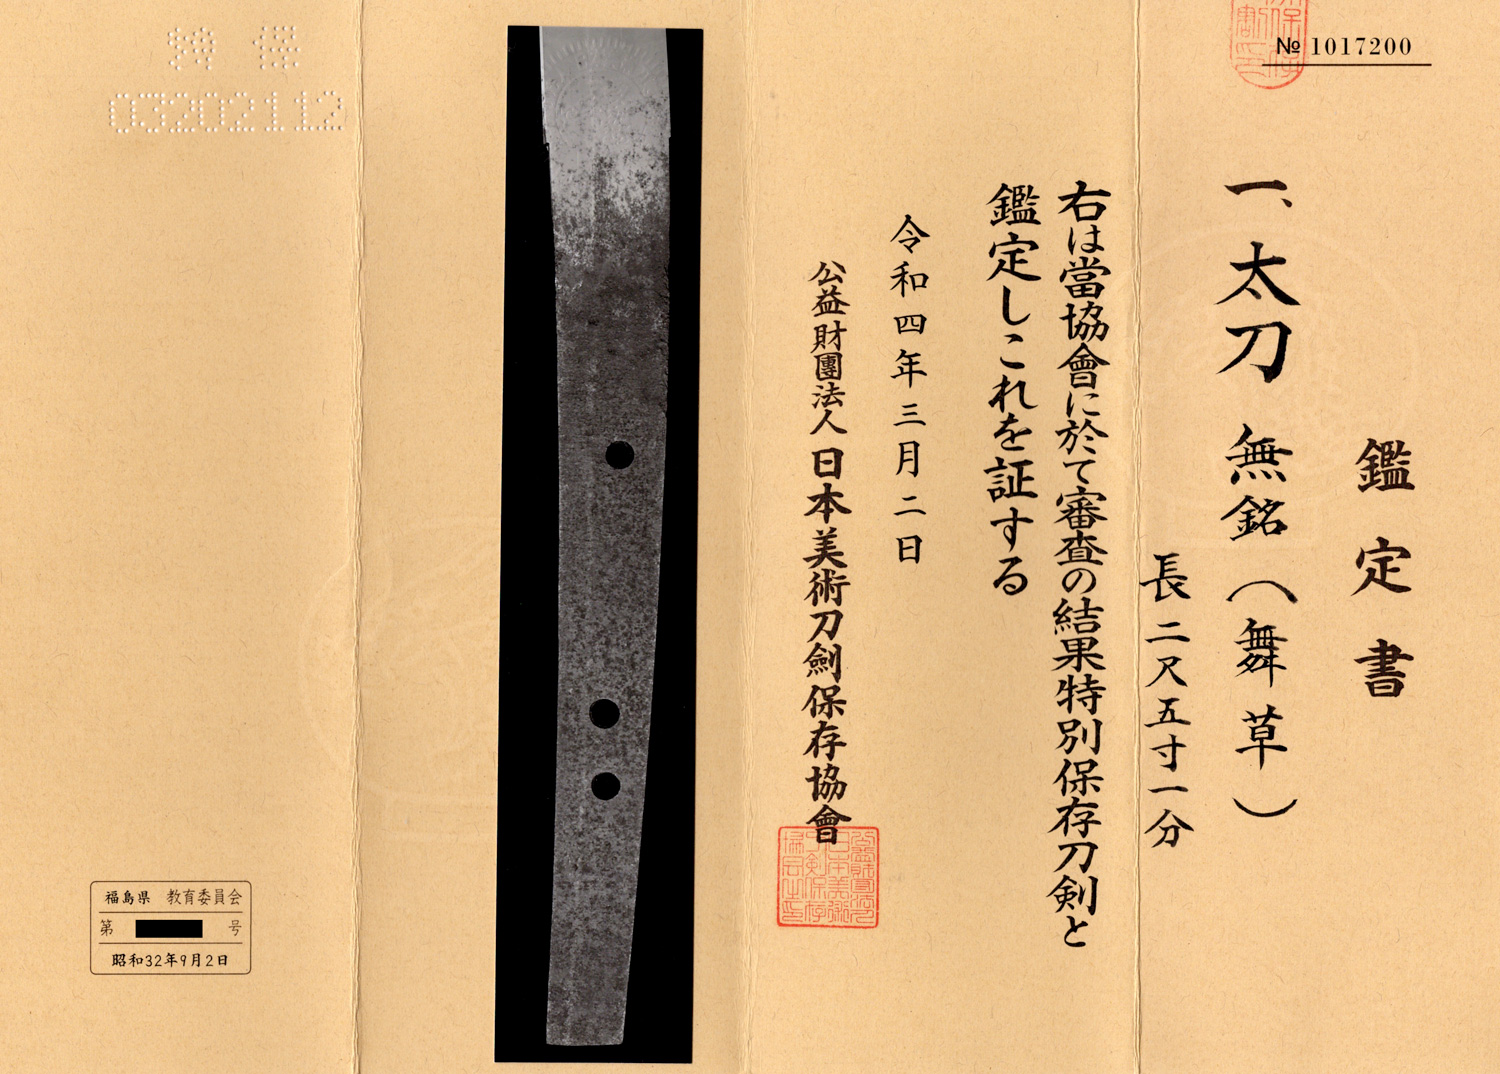 № 1017200
鑑定書
一、太刀 無銘（舞草）
長二尺五寸一分
右は當協會に於て審査の結果特別保存刀剣と
鑑定しこれを証する
令和四年三月二日
公益財團法人 日本美術刀劍保存協會
特保
03202112
福島県 教育委員会
第 号
昭和32年9月2日